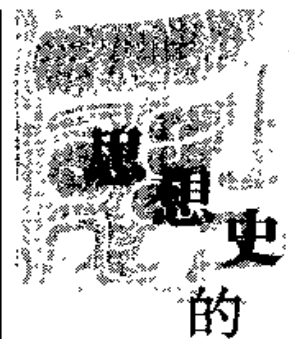 思想史
的